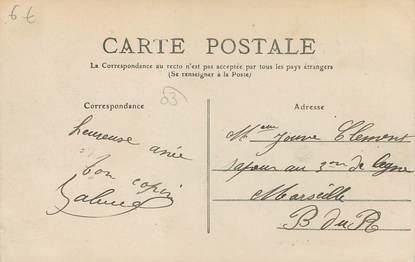 6 €
CARTE POSTALE
La Correspondance au recto n'est pas acceptée par tous les pays étrangers
(Se renseigner à la Poste)
Correspondance
83
Adresse
heureuse anée
bon copin
Mr Jouve Clement
au 3me de ligne
Marseille
B du R